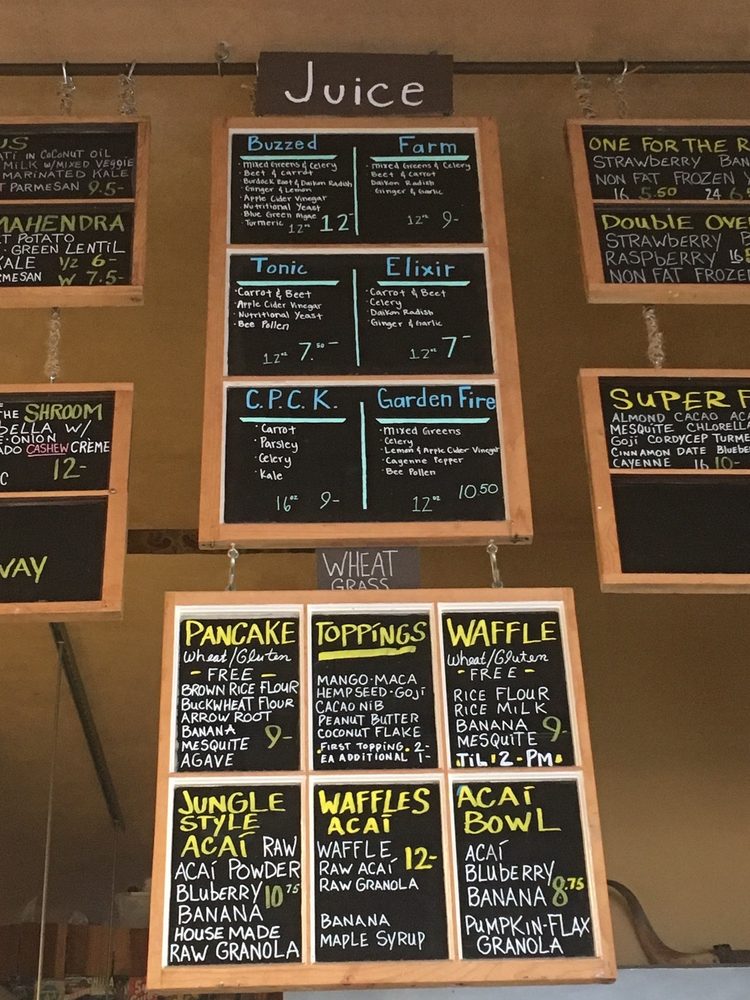 Juice
US
ATI IN COCONUT OIL
MILK W/MIXED VEGGIE
MARINATED KALE
PARMESAN 9.5-
MAHENDRA
T POTATO
GREEN LENTIL
KALE 1/2 6-
MESAN W 7.5-
THE SHROOM
BELLA, W/
ONION
ADO CASHEW CRÈME
C 12-
WAY
Buzzed
· Mixed Greens & Celery
· Beet & Carrot
· Burdock Root & Daikon Radish
· Ginger & Lemon
· Apple Cider Vinegar
· Nutritional Yeast
· Blue Green Algae
· Turmeric 12oz 12-
Farm
· Mixed Greens & Celery
· Beet & Carrot
· Daikon Radish
· Ginger & Garlic
12oz 9-
Tonic
· Carrot & Beet
· Apple Cider Vinegar
· Nutritional Yeast
· Bee Pollen
12oz 7.50-
Elixir
· Carrot & Beet
· Celery
· Daikon Radish
· Ginger & Garlic
12oz 7-
C.P.C.K.
· Carrot
· Parsley
· Celery
· Kale
16oz 9-
Garden Fire
· Mixed Greens
· Celery
· Lemon & Apple Cider Vinegar
· Cayenne Pepper
· Bee Pollen
12oz 10.50
ONE FOR THE R
STRAWBERRY BAN
NON FAT FROZEN Y
16 5.50 24 6
DOUBLE OVE
STRAWBERRY
RASPBERRY 16
NON FAT FROZE
SUPER F
ALMOND CACAO ACA
MESQUITE CHLORELLA
GOJI CORDYCEP TURME
CINNAMON DATE BLUEBE
CAYENNE 16 10-
WHEAT
GRASS
PANCAKE
Wheat/Gluten
- FREE -
BROWN RICE FLOUR
BUCKWHEAT FLOUR
ARROW ROOT
BANANA
MESQUITE 9-
AGAVE
TOPPINGS
MANGO·MACA
HEMPSEED·GOJI
CACAO NIB
PEANUT BUTTER
COCONUT FLAKE
·FIRST TOPPING· 2-
EA ADDITIONAL 1-
WAFFLE
Wheat/Gluten
- FREE -
RICE FLOUR
RICE MILK
BANANA
MESQUITE 9-
TIL·2·PM·
JUNGLE
STYLE
ACAÍ RAW
ACAÍ POWDER
BLUBERRY 10.75
BANANA
HOUSE MADE
RAW GRANOLA
WAFFLES
ACAÍ
WAFFLE 12-
RAW ACAÍ
RAW GRANOLA
BANANA
MAPLE SYRUP
ACAÍ
BOWL
ACAÍ
BLUBERRY
BANANA 8.75
PUMPKIN-FLAX
GRANOLA